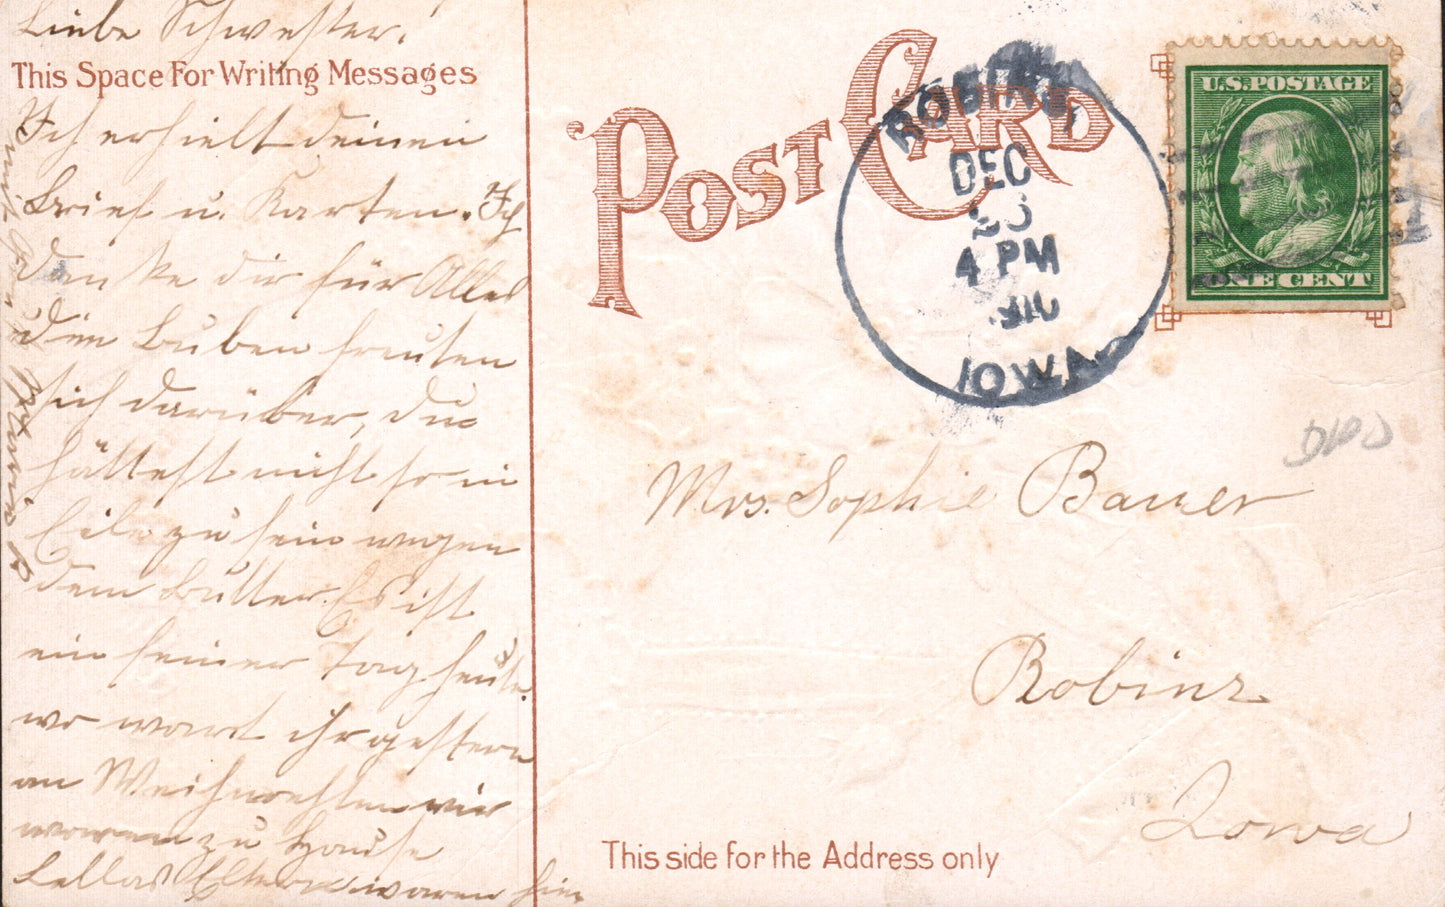 Liebe Schwester!
This Space For Writing Messages
Ich erhielt deinen
Brief u. Karten. Ich
danke dir für Alles
die Buben freuten
sich darüber, du
hättest nicht so in
Eile zu sein wegen
dem Butter. Es ist
ein feiner Tag heute.
wo wart ihr gestern
an Weihnachten wir
waren zu Hause
Eltern waren hier
POST CARD
ROBINS,
DEC
4 PM
IOWA
U.S. POSTAGE
ONE CENT
Mrs. Sophie Bauer
Robins
Iowa
This side for the Address only